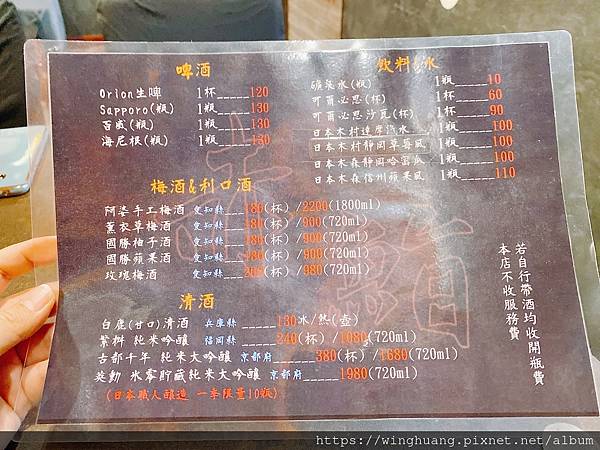 啤酒
Orion生啤 1杯_____120
Sapporo(瓶) 1瓶_____130
百威(瓶) 1瓶_____130
海尼根(瓶) 1瓶_____130
飲料&水
礦泉水(瓶) 1瓶_____10
可爾必思(杯) 1杯_____60
可爾必思沙瓦(杯) 1杯_____90
日本木村達摩汽水 1瓶_____100
日本木村靜岡草莓風 1瓶_____100
日本木森靜岡哈密瓜 1瓶_____100
日本木森信州蘋果風 1瓶_____110
梅酒&利口酒
阿婆手工梅酒 愛知縣___180(杯) /2200(1800ml)
薰衣草梅酒 愛知縣___180(杯) /900(720ml)
國勝柚子酒 愛知縣___180(杯) /900(720ml)
國勝蘋果酒 愛知縣___180(杯) /900(720ml)
玫瑰梅酒 愛知縣___200(杯) /980(720ml)
清酒
白鹿(甘口)清酒 兵庫縣 _____130冰/熱(壺)
繁料 純米吟釀 福岡縣 _____240(杯) /1080(720ml)
古都千年 純米大吟釀 京都府_____380(杯) /1680(720ml)
英勳 氷零貯藏純米大吟釀 京都府_____1980(720ml)
(日本職人釀造 一季限量10瓶)
若自行帶酒均收開瓶費
本店不收服務費
https://winghuang.pixnet.net/album